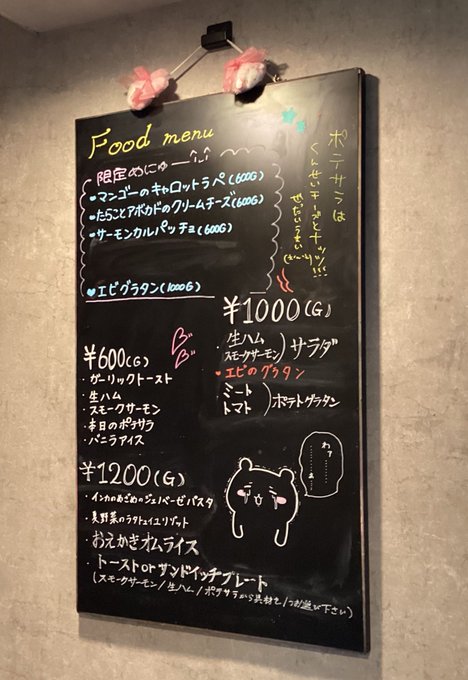 Food menu
限定めにゅー
・マンゴーのキャロットラペ(600G)
・たらことアボカドのクリームチーズ(600G)
・サーモンカルパッチョ(600G)
♥エビグラタン(1000G)
ポテサラは
くんせいチーズとナッツ!!!
ぜったいうまい
¥1000(G)
・生ハム
スモークサーモン)サラダ
♥エビのグラタン
・ミート
トマト)ポテトグラタン
¥600(G)
・ガーリックトースト
・生ハム
・スモークサーモン
・本日のポテサラ
・バニラアイス
¥1200(G)
・インカのめざめのジェノベーゼパスタ
・夏野菜のラタトゥイユリゾット
・おえかきオムライス
・トーストorサンドイッチプレート
(スモークサーモン/生ハム/ポテサラから具材を1つお選び下さい)
わァ…